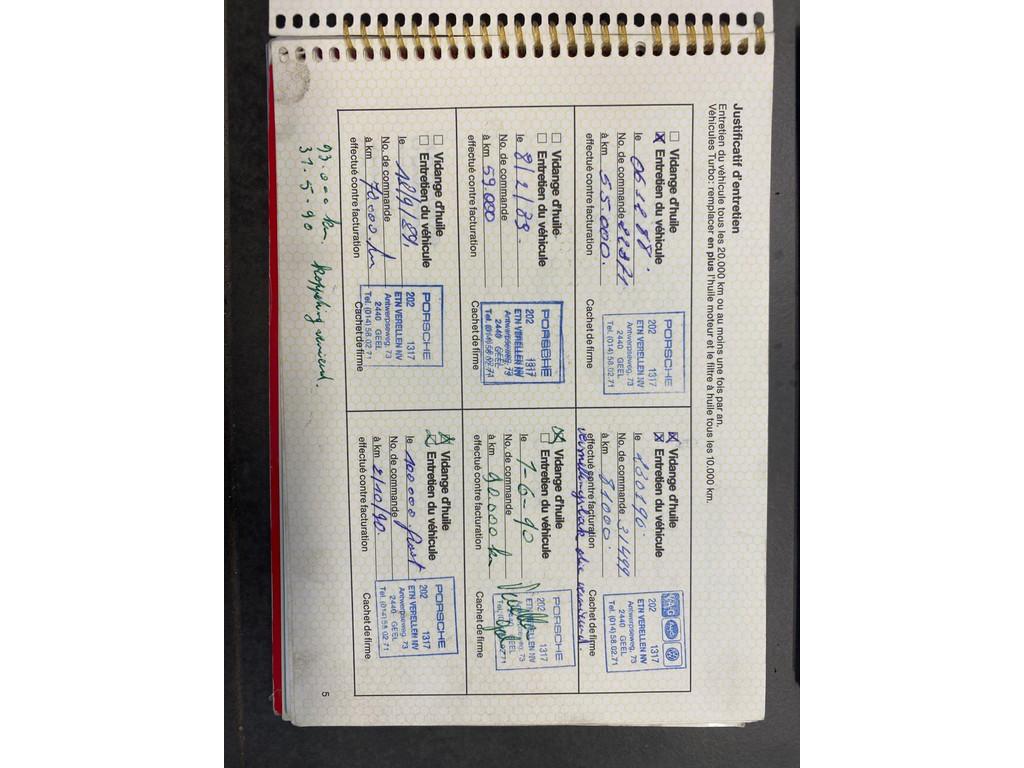 Justificatif d'entretien
Entretien du véhicule tous les 20.000 km ou au moins une fois par an.
Véhicules Turbo: remplacer en plus l'huile moteur et le filtre à huile tous les 10.000 km.
Vidange d'huile
X Entretien du véhicule
le 06 12 88.
No. de commande
à km 55.000.
effectué contre facturation
PORSCHE
202 1317
ETN VERELLEN NV
Antwerpseweg, 73
2440 GEEL
Tel. (014) 58.02.71
Cachet de firme
X Vidange d'huile
X Entretien du véhicule
le
No. de commande 31499
à km 81000.
effectué contre facturation
VAG
202 1317
ETN VERELLEN NV
Antwerpseweg, 73
2440 GEEL
Tel. (014) 58.02.71
Cachet de firme
Vidange d'huile
Entretien du véhicule
le 8/2/89.
No. de commande
à km 59.000
effectué contre facturation
PORSCHE
202 1317
ETN VERELLEN NV
Antwerpseweg, 73
2440 GEEL
Tel. (014) 58.02.71
Cachet de firme
X Vidange d'huile
Entretien du véhicule
le 7-6-90
No. de commande
à km 90.000 km
effectué contre facturation
PORSCHE
202 1317
ETN VERELLEN NV
73
GEEL
Cachet de firme
Vidange d'huile
Entretien du véhicule
le 18/9/89.
No. de commande
à km 70.000 km
effectué contre facturation
PORSCHE
202 1317
ETN VERELLEN NV
Antwerpseweg, 73
2440 GEEL
Tel. (014) 58.02.71
Cachet de firme
X Vidange d'huile
Entretien du véhicule
le 100000
No. de commande
à km 2/10/90.
effectué contre facturation
PORSCHE
202 1317
ETN VERELLEN NV
Antwerpseweg, 73
2440 GEEL
Tel. (014) 58.02.71
Cachet de firme
93.000 km. koppeling vernieuwd.
31-5-90
5